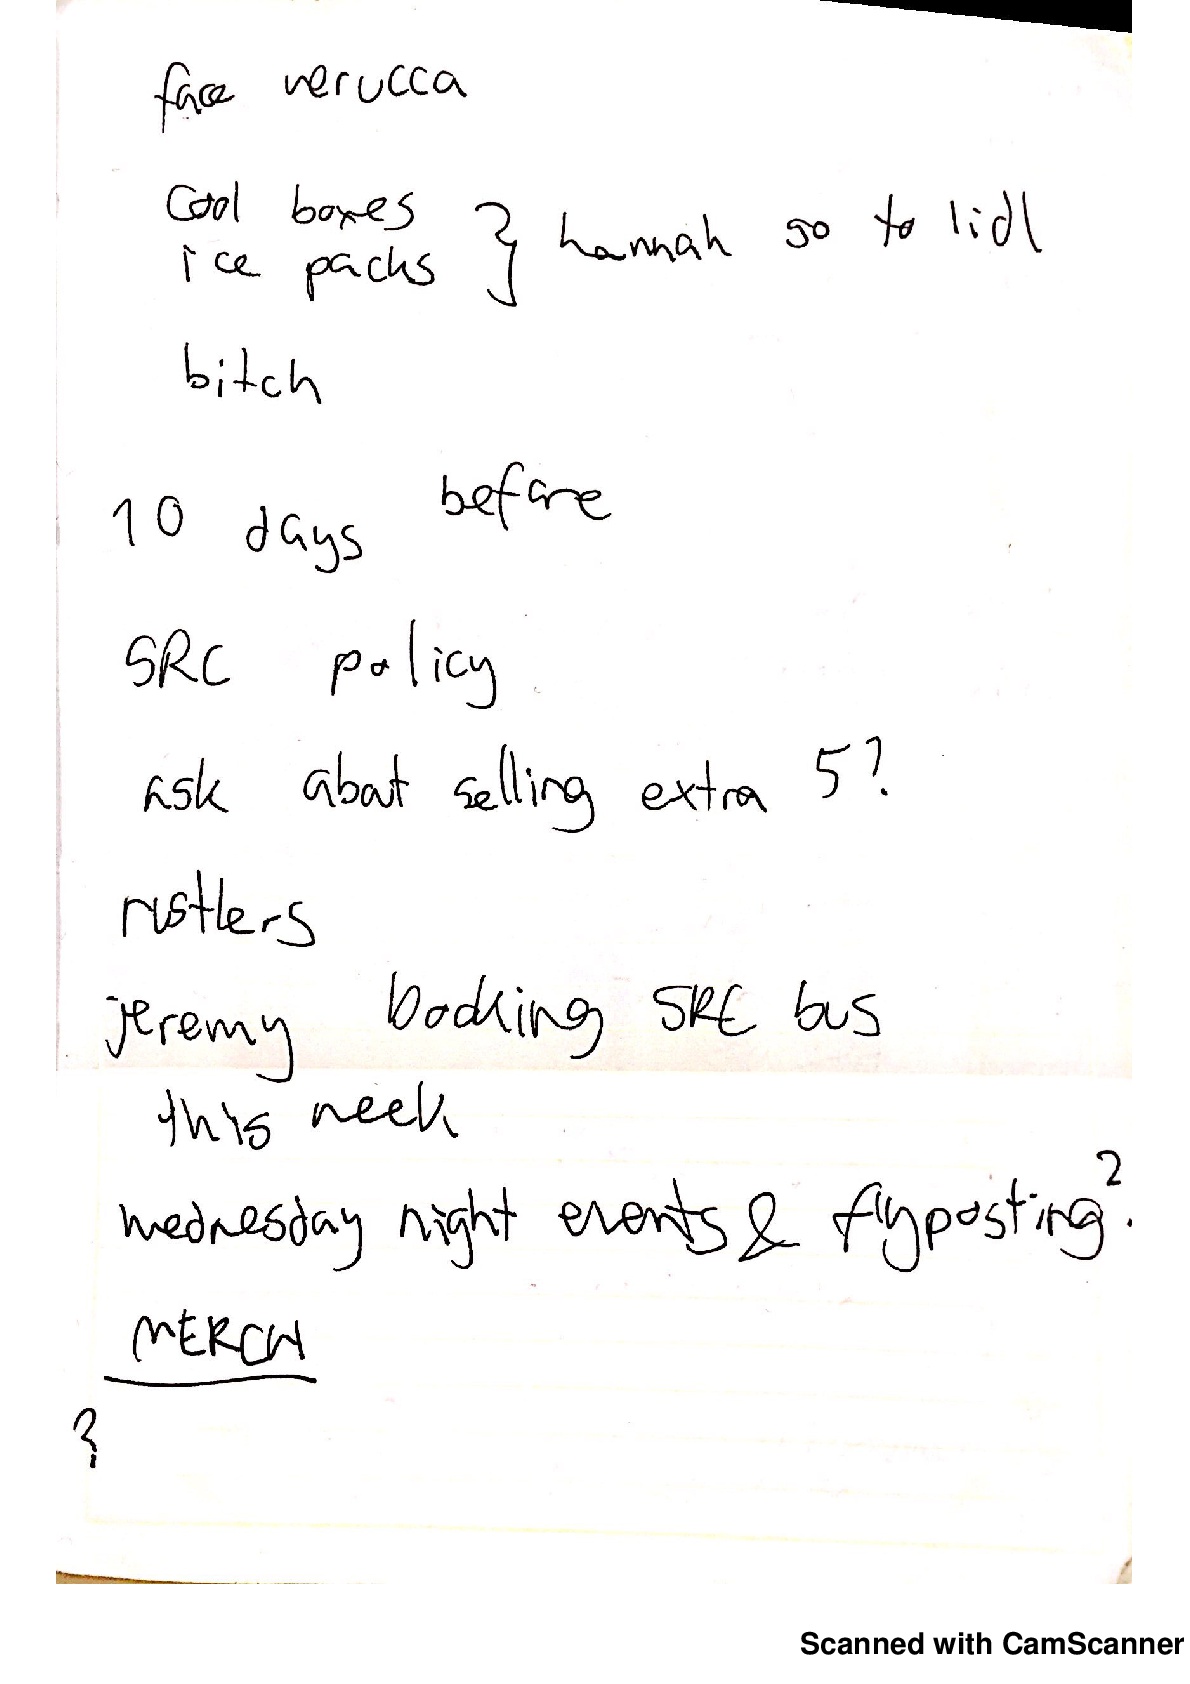 face verucca
cool boxes
ice packs } hannah go to lidl
bitch
10 days before
SRC policy
ask about selling extra 5?
rustlers
jeremy booking SRC bus
this week
wednesday night events & flyposting?
MERCH
?
Scanned with CamScanner